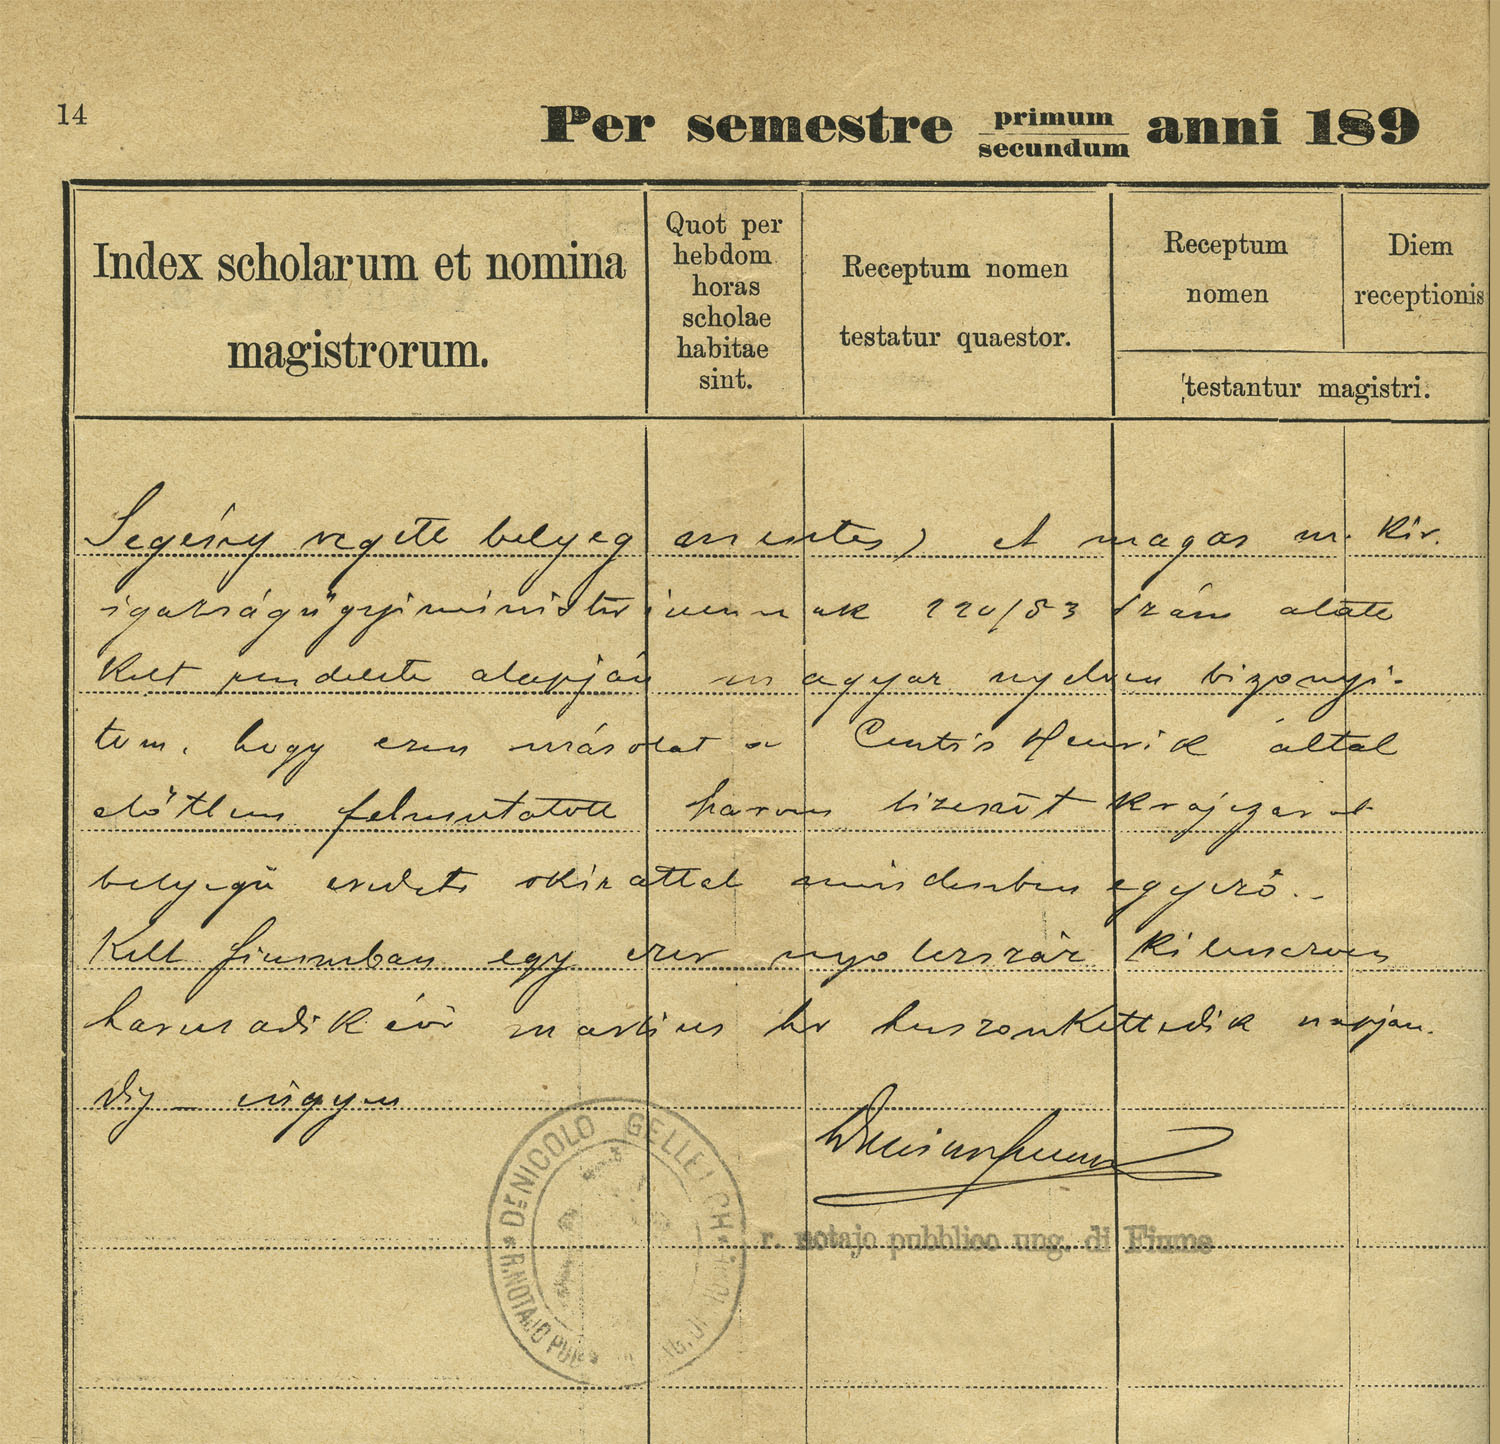 14
Per semestre primum secundum anni 189
Index scholarum et nomina
magistrorum.
Quot per
hebdom
horas
scholae
habitae
sint.
Receptum nomen
testatur quaestor.
Receptum
nomen
Diem
receptionis
testantur magistri.
Segény végett bélyeg mentes) A magas m. kir.
igazságügyiministeriumnak 220/83 szám alatt
kelt rendelete alapján magyar nyelven bizonyi-
tom, hogy ezen másolat a Curtis Henrik által
előttem felmutatott harom tizenöt krajczár
belyegü eredeti okirattal mindenben egyező.
Kelt Fiumeban egy ezer nyolczszáz kilenczven
harmadik évi martius hó huszonkettedik napján.
Dij – ingyen
Dr NICOLO GELLETICH
R. NOTAJO
r. notajo pubblico ung. di Fiume